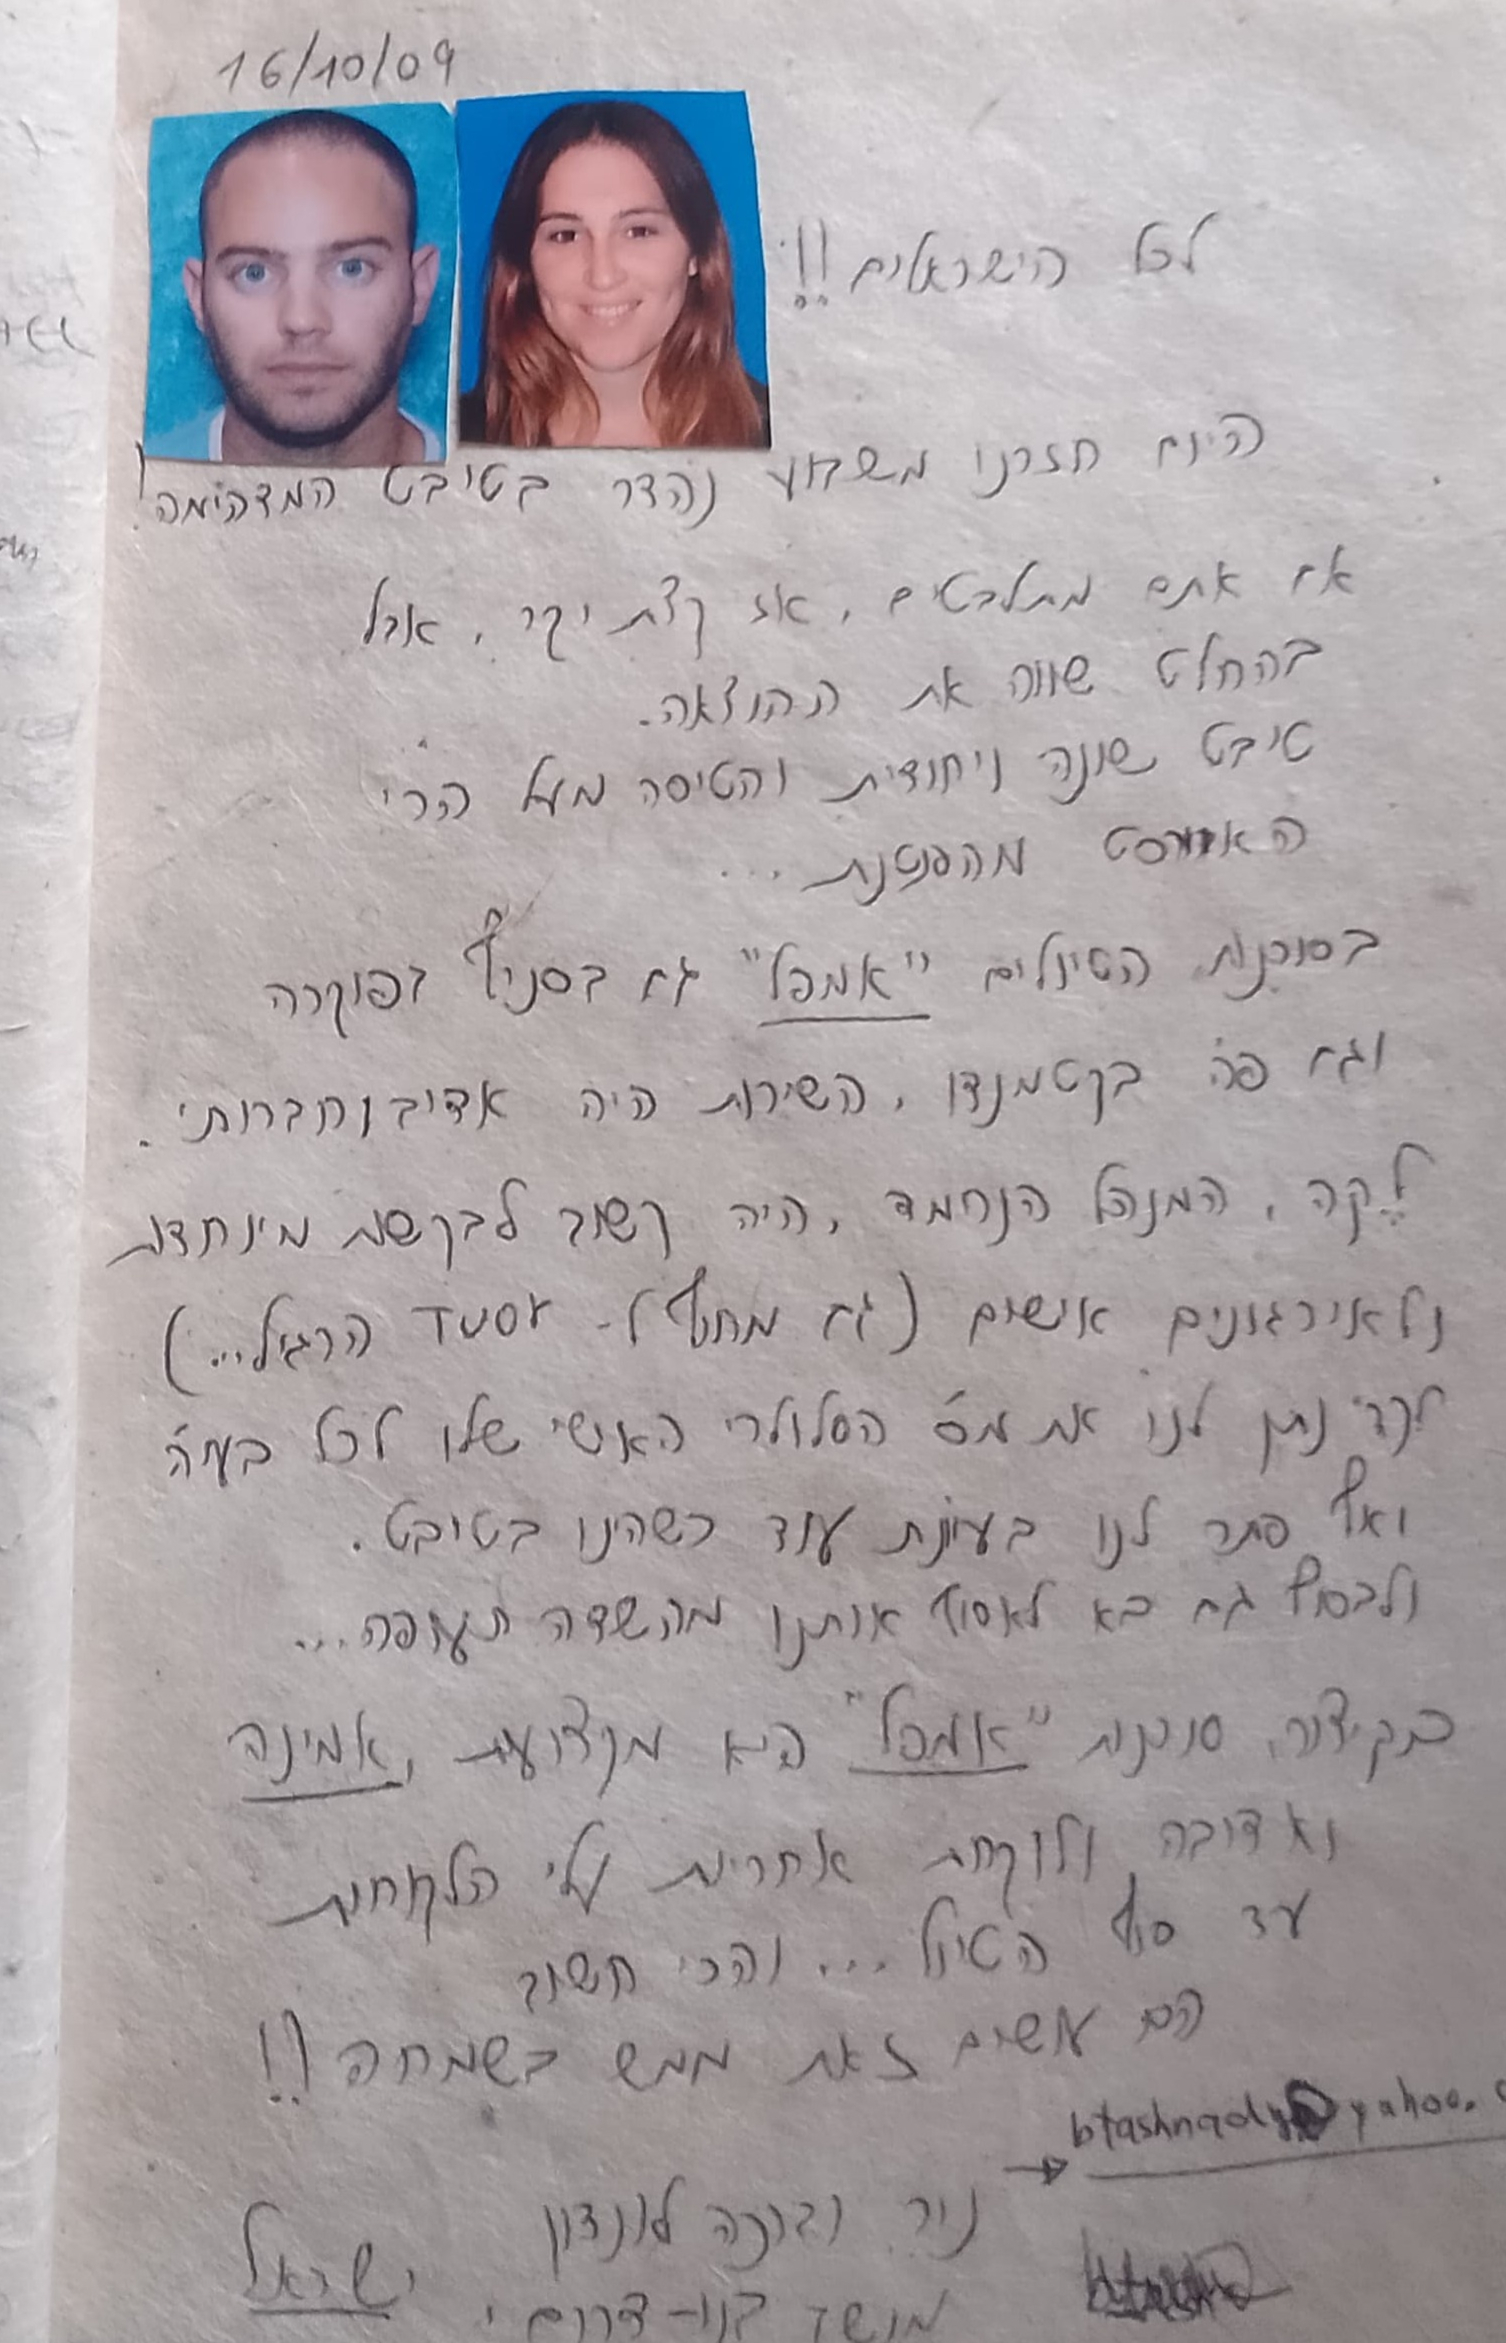 16/10/09
לכל הישראלים!!
הינה חזרנו משבוע נהדר בטיבט המדהימה!
אם אתם מתלבטים, אז קצת יקר, אבל
בהחלט שווה את ההוצאה.
טיבט שונה ויחודית והטיסה מעל הרי
האוורסט מהפנטת...
בסוכנות הטיולים "אמפל" גם בסניף בפוקרה
וגם פה בקטמנדו, השירות היה אדיב וחברותי.
לקה, המנהל הנחמד, היה קשוב לבקשות מיוחדות
ולאירגונים אישים (גם מחוץ ל- עסטד הרגיל...)
נתן לנו את מס' הסלולרי האישי שלו לכל בעיה
ואף פתר לנו בעיות עוד כשהינו בטיבט.
ולבסוף גם בא לאסוף אותנו מהשדה תעופה...
בקיצור, סוכנות "אמפל" היא מקצועית, אמינה
ואדיבה ולוקחת אחריות על הלקוחות
עד סוף הטיול... והכי חשוב
הם עושים זאת ממש בשמחה!!
btashnady@yahoo.
ניר וברכה לונדון
מושב בני-דרום, ישראל